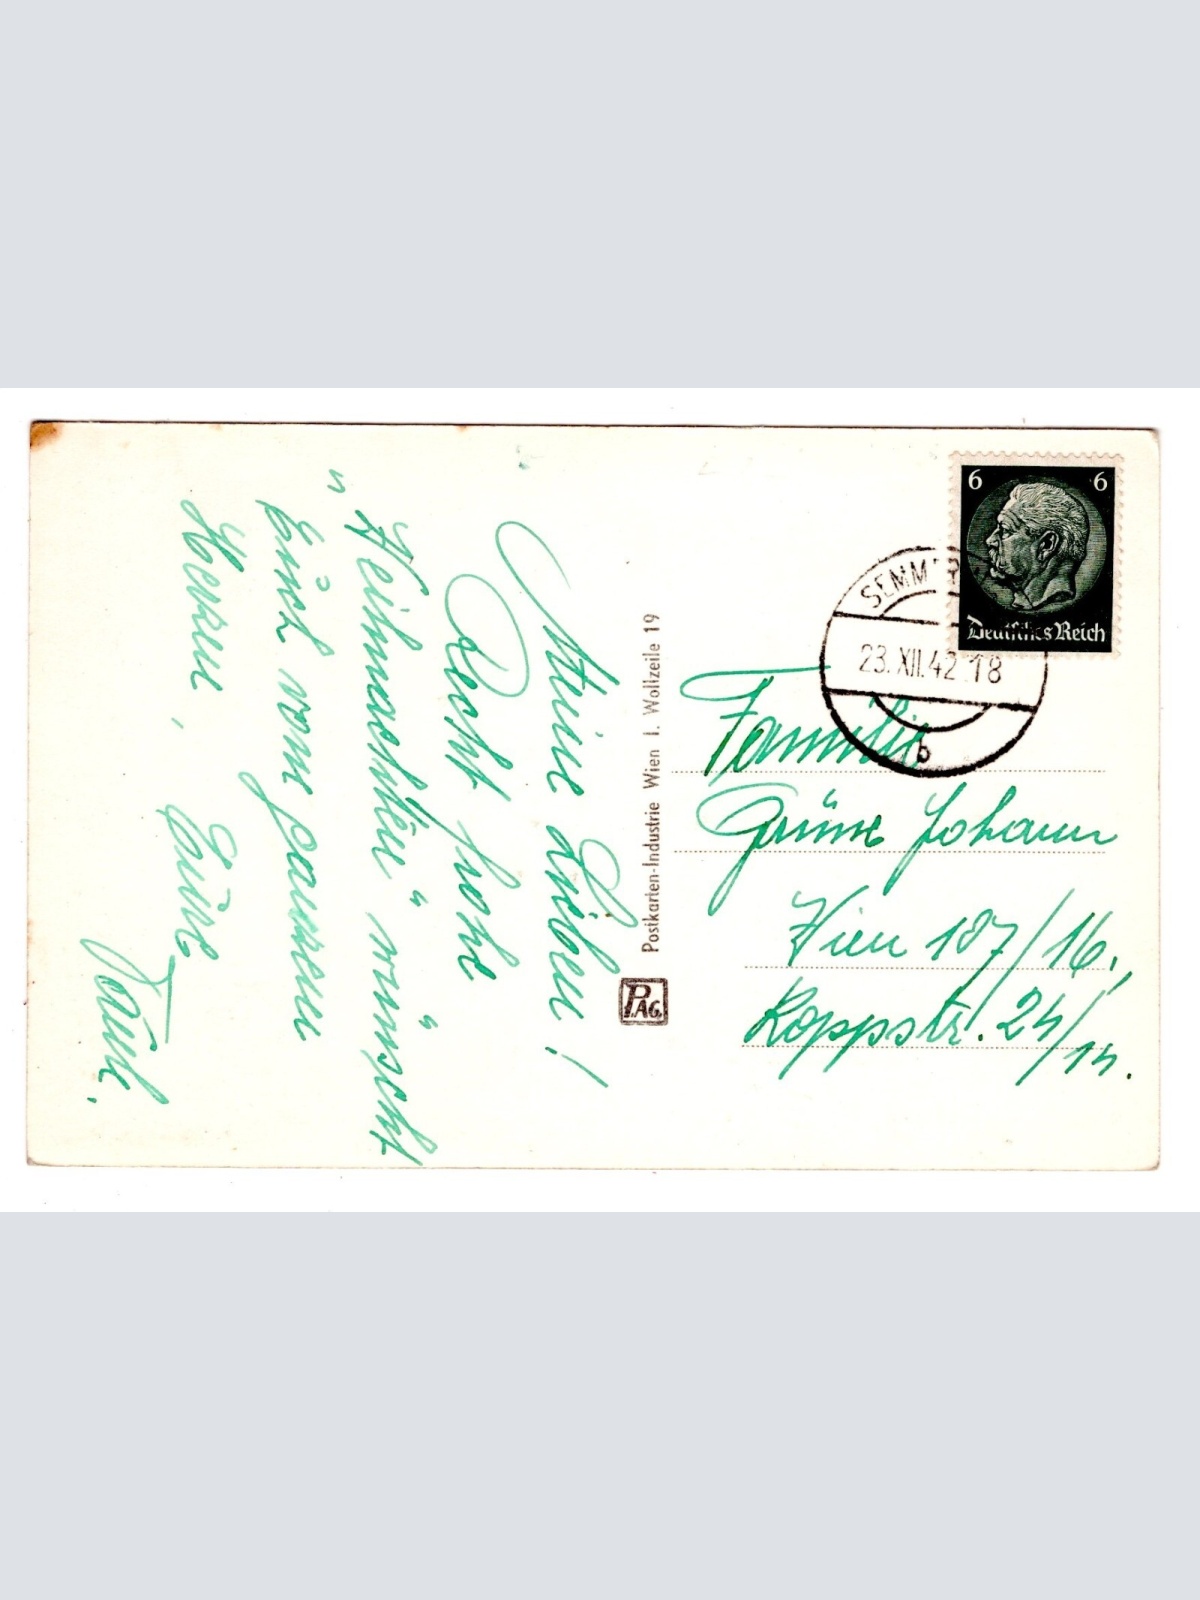 Meine Lieben!
Recht frohe
"Weihnachten" wünscht
Euch vom ganzen
Herzen,
Eure
6 6
Deutsches Reich
SEMMER
23. XII. 42 18
b
Familie
Grüne Johann
Wien 107/16.,
Koppstr. 24/
14.
Postkarten-Industrie Wien I. Wollzeile 19
PAG.